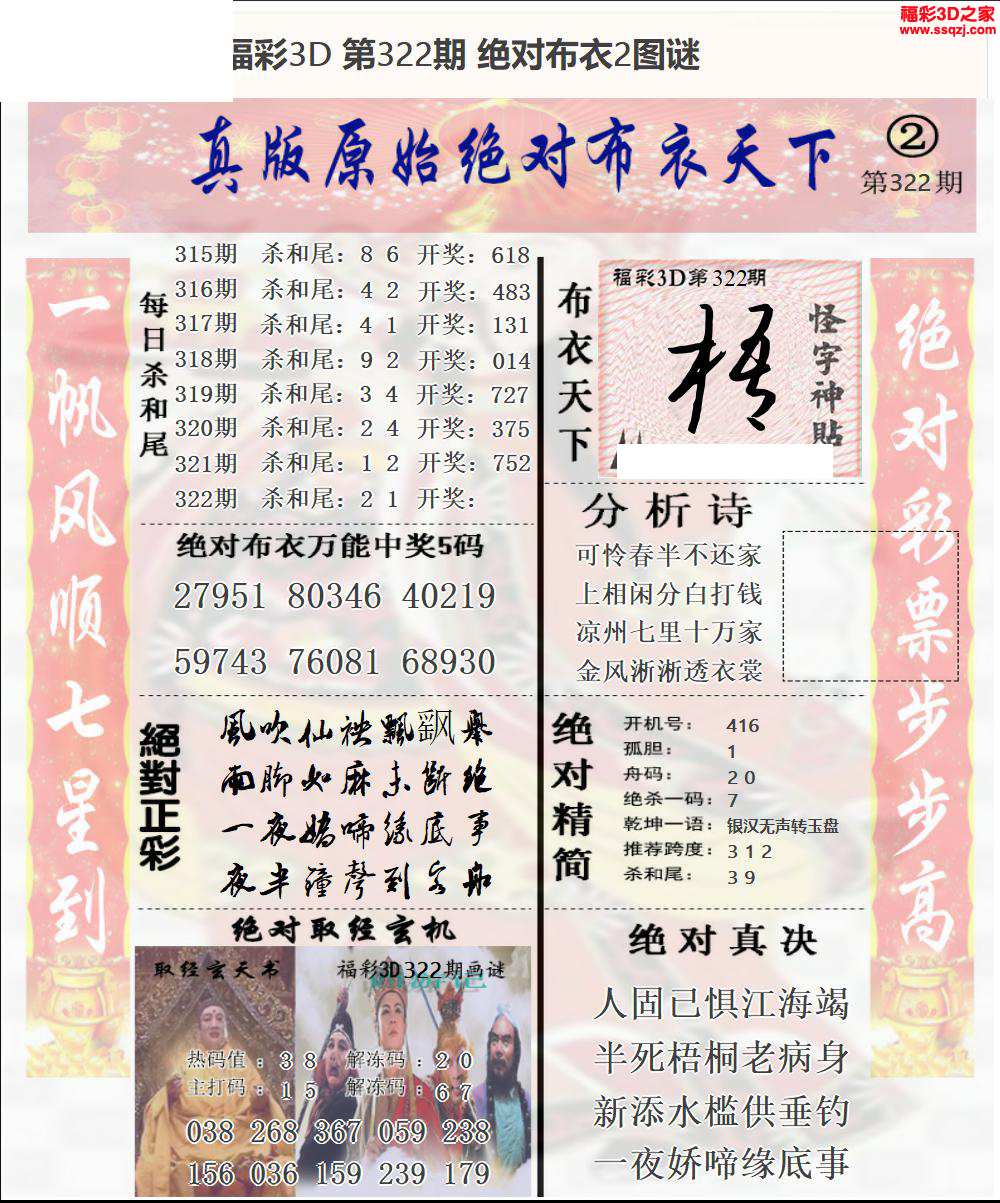 福彩3D之家
www.ssqzj.com
福彩3D 第322期 绝对布衣2图谜
真版原始绝对布衣天下
②
第322期
一帆风顺七星到
每日杀和尾
315期 杀和尾：8 6 开奖：618
316期 杀和尾：4 2 开奖：483
317期 杀和尾：4 1 开奖：131
318期 杀和尾：9 2 开奖：014
319期 杀和尾：3 4 开奖：727
320期 杀和尾：2 4 开奖：375
321期 杀和尾：1 2 开奖：752
322期 杀和尾：2 1 开奖：
绝对布衣万能中奖5码
27951 80346 40219
59743 76081 68930
絕對正彩
風吹仙袂飄飖舉
雨脚如麻未断绝
一夜娇啼缘底事
夜半鐘聲到客船
绝对取经玄机
取经玄天书
福彩3D322期画谜
热码值：3 8 解冻码：2 0
主打码：1 5 解冻码：6 7
038 268 367 059 238
156 036 159 239 179
布衣天下
福彩3D第322期
梧
怪字神貼
分析诗
可怜春半不还家
上相闲分白打钱
凉州七里十万家
金风淅淅透衣裳
绝对精简
开机号：416
孤胆：1
舟码：2 0
绝杀一码：7
乾坤一语：银汉无声转玉盘
推荐跨度：3 1 2
杀和尾：3 9
绝对真决
人固已惧江海竭
半死梧桐老病身
新添水槛供垂钓
一夜娇啼缘底事
绝对彩票步步高